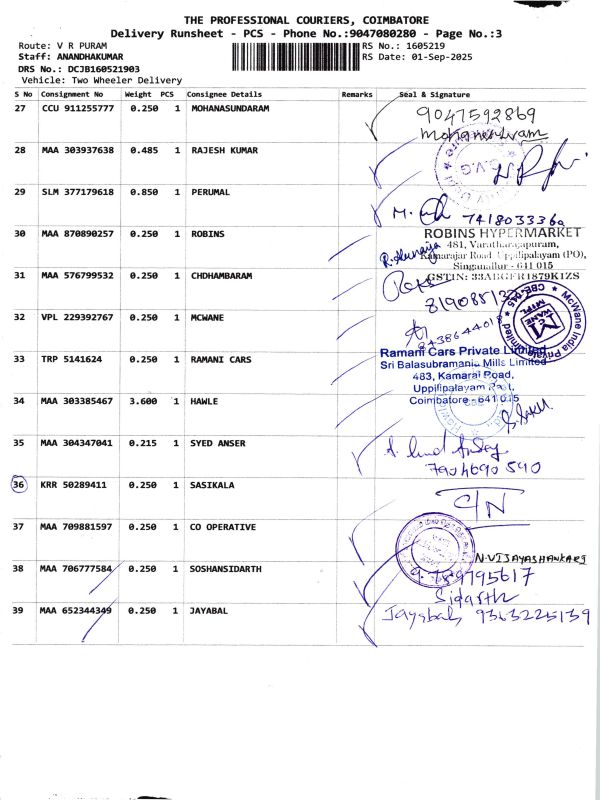 THE PROFESSIONAL COURIERS, COIMBATORE
Delivery Runsheet - PCS - Phone No.:9047080280 - Page No.:3
Route: V R PURAM RS No.: 1605219
Staff: ANANDHAKUMAR RS Date: 01-Sep-2025
DRS No.: DCJB160521903
Vehicle: Two Wheeler Delivery
S No Consignment No Weight PCS Consignee Details Remarks Seal & Signature
27 CCU 911255777 0.250 1 MOHANASUNDARAM 9047592869
28 MAA 303937638 0.485 1 RAJESH KUMAR
29 SLM 377179618 0.850 1 PERUMAL 7418033360
30 MAA 870890257 0.250 1 ROBINS
ROBINS HYPERMARKET
481, Varatharajapuram,
Kamarajar Road, Uppilipalayam (PO),
Singanallur - 641 015
GSTIN: 33ABGFR1879K1ZS
31 MAA 576799532 0.250 1 CHDHAMBARAM
32 VPL 229392767 0.250 1 MCWANE 8438644018
McWane India Private Limited
CBE-045
MIPL
33 TRP 5141624 0.250 1 RAMANI CARS
Ramani Cars Private Limited
Sri Balasubramania Mills Limited
483, Kamaraj Road,
Uppilipalayam Post,
Coimbatore - 641 015
34 MAA 303385467 3.600 1 HAWLE
35 MAA 304347041 0.215 1 SYED ANSER
7904690540
36 KRR 50289411 0.250 1 SASIKALA C/N
37 MAA 709881597 0.250 1 CO OPERATIVE
N.VIJAYASHANKARI
38 MAA 706777584 0.250 1 SOSHANSIDARTH
Sidarth
39 MAA 652344349 0.250 1 JAYABAL Jayabal 9363225139